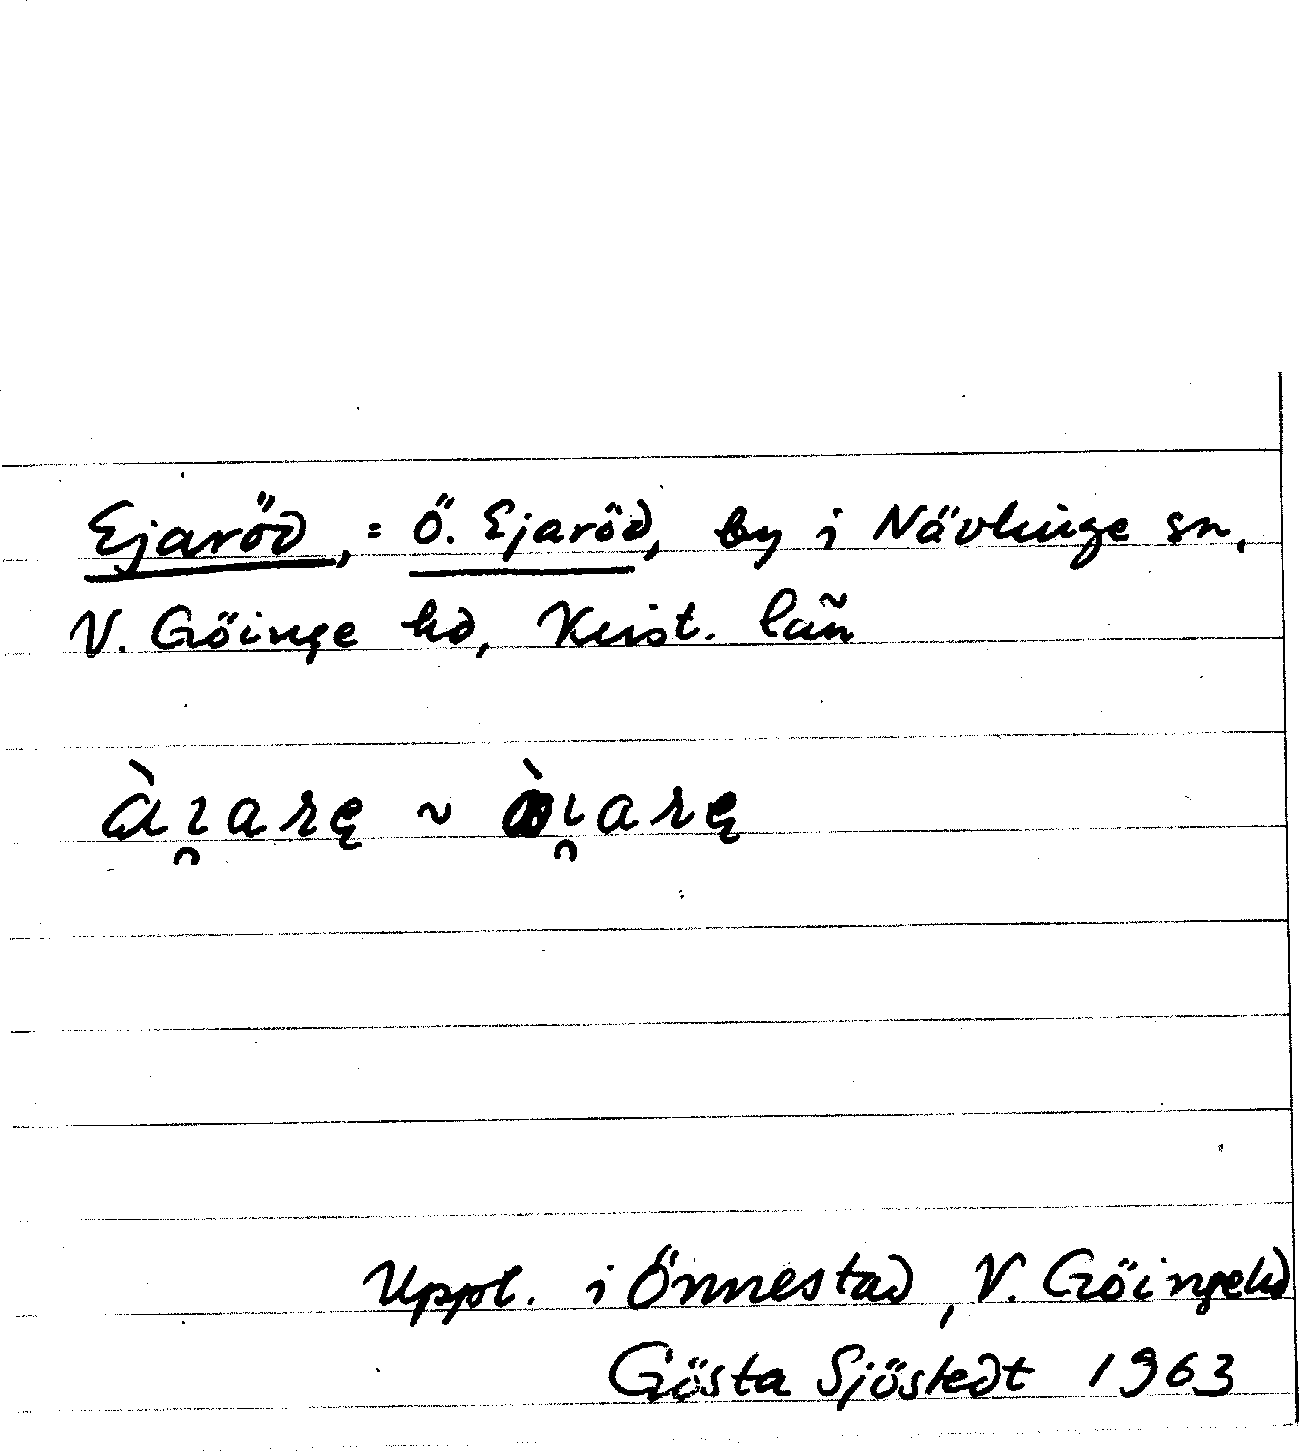 Ejaröd, = Ö. Ejaröd, by i Nävlinge sn,
V. Göinge hd, Krist. län
à ı̯arę ~ ı̯arę
Uppl. i Önnestad, V. Göingehd
Gösta Sjöstedt 1963